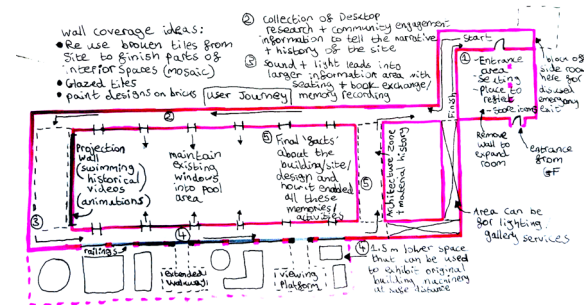 wall coverage ideas:
• Re use broken tiles from
site to finish parts of
interior spaces (mosaic)
• Glazed tiles
• paint designs on bricks
② collection of Desktop
research + community engagement
information to tell the narrative
+ history of the site
③ sound + light leads into
larger information area with
seating + book exchange/
memory recording
user Journey
Start
①
- Entrance
area
Seating
- Place
to
reflect
- store icons
Block off
side room
here for
disused
emergency
exit
Finish
Remove
wall to
expand
room
entrance
from
GF
②
Projection
wall
(swimming
historical
videos)
(animations)
maintain
existing
windows
into pool
area
⑤ Final 'facts'
about the
building/site/
design and
how it enabled
all these
memories/
activities
⑤
Architecture zone
+ material history
③
④
Area can be
for lighting,
gallery services
④ 1.5m lower space
that can be used
to exhibit original
building machinery
at safe distance
railings
extended
walkway
viewing
platform